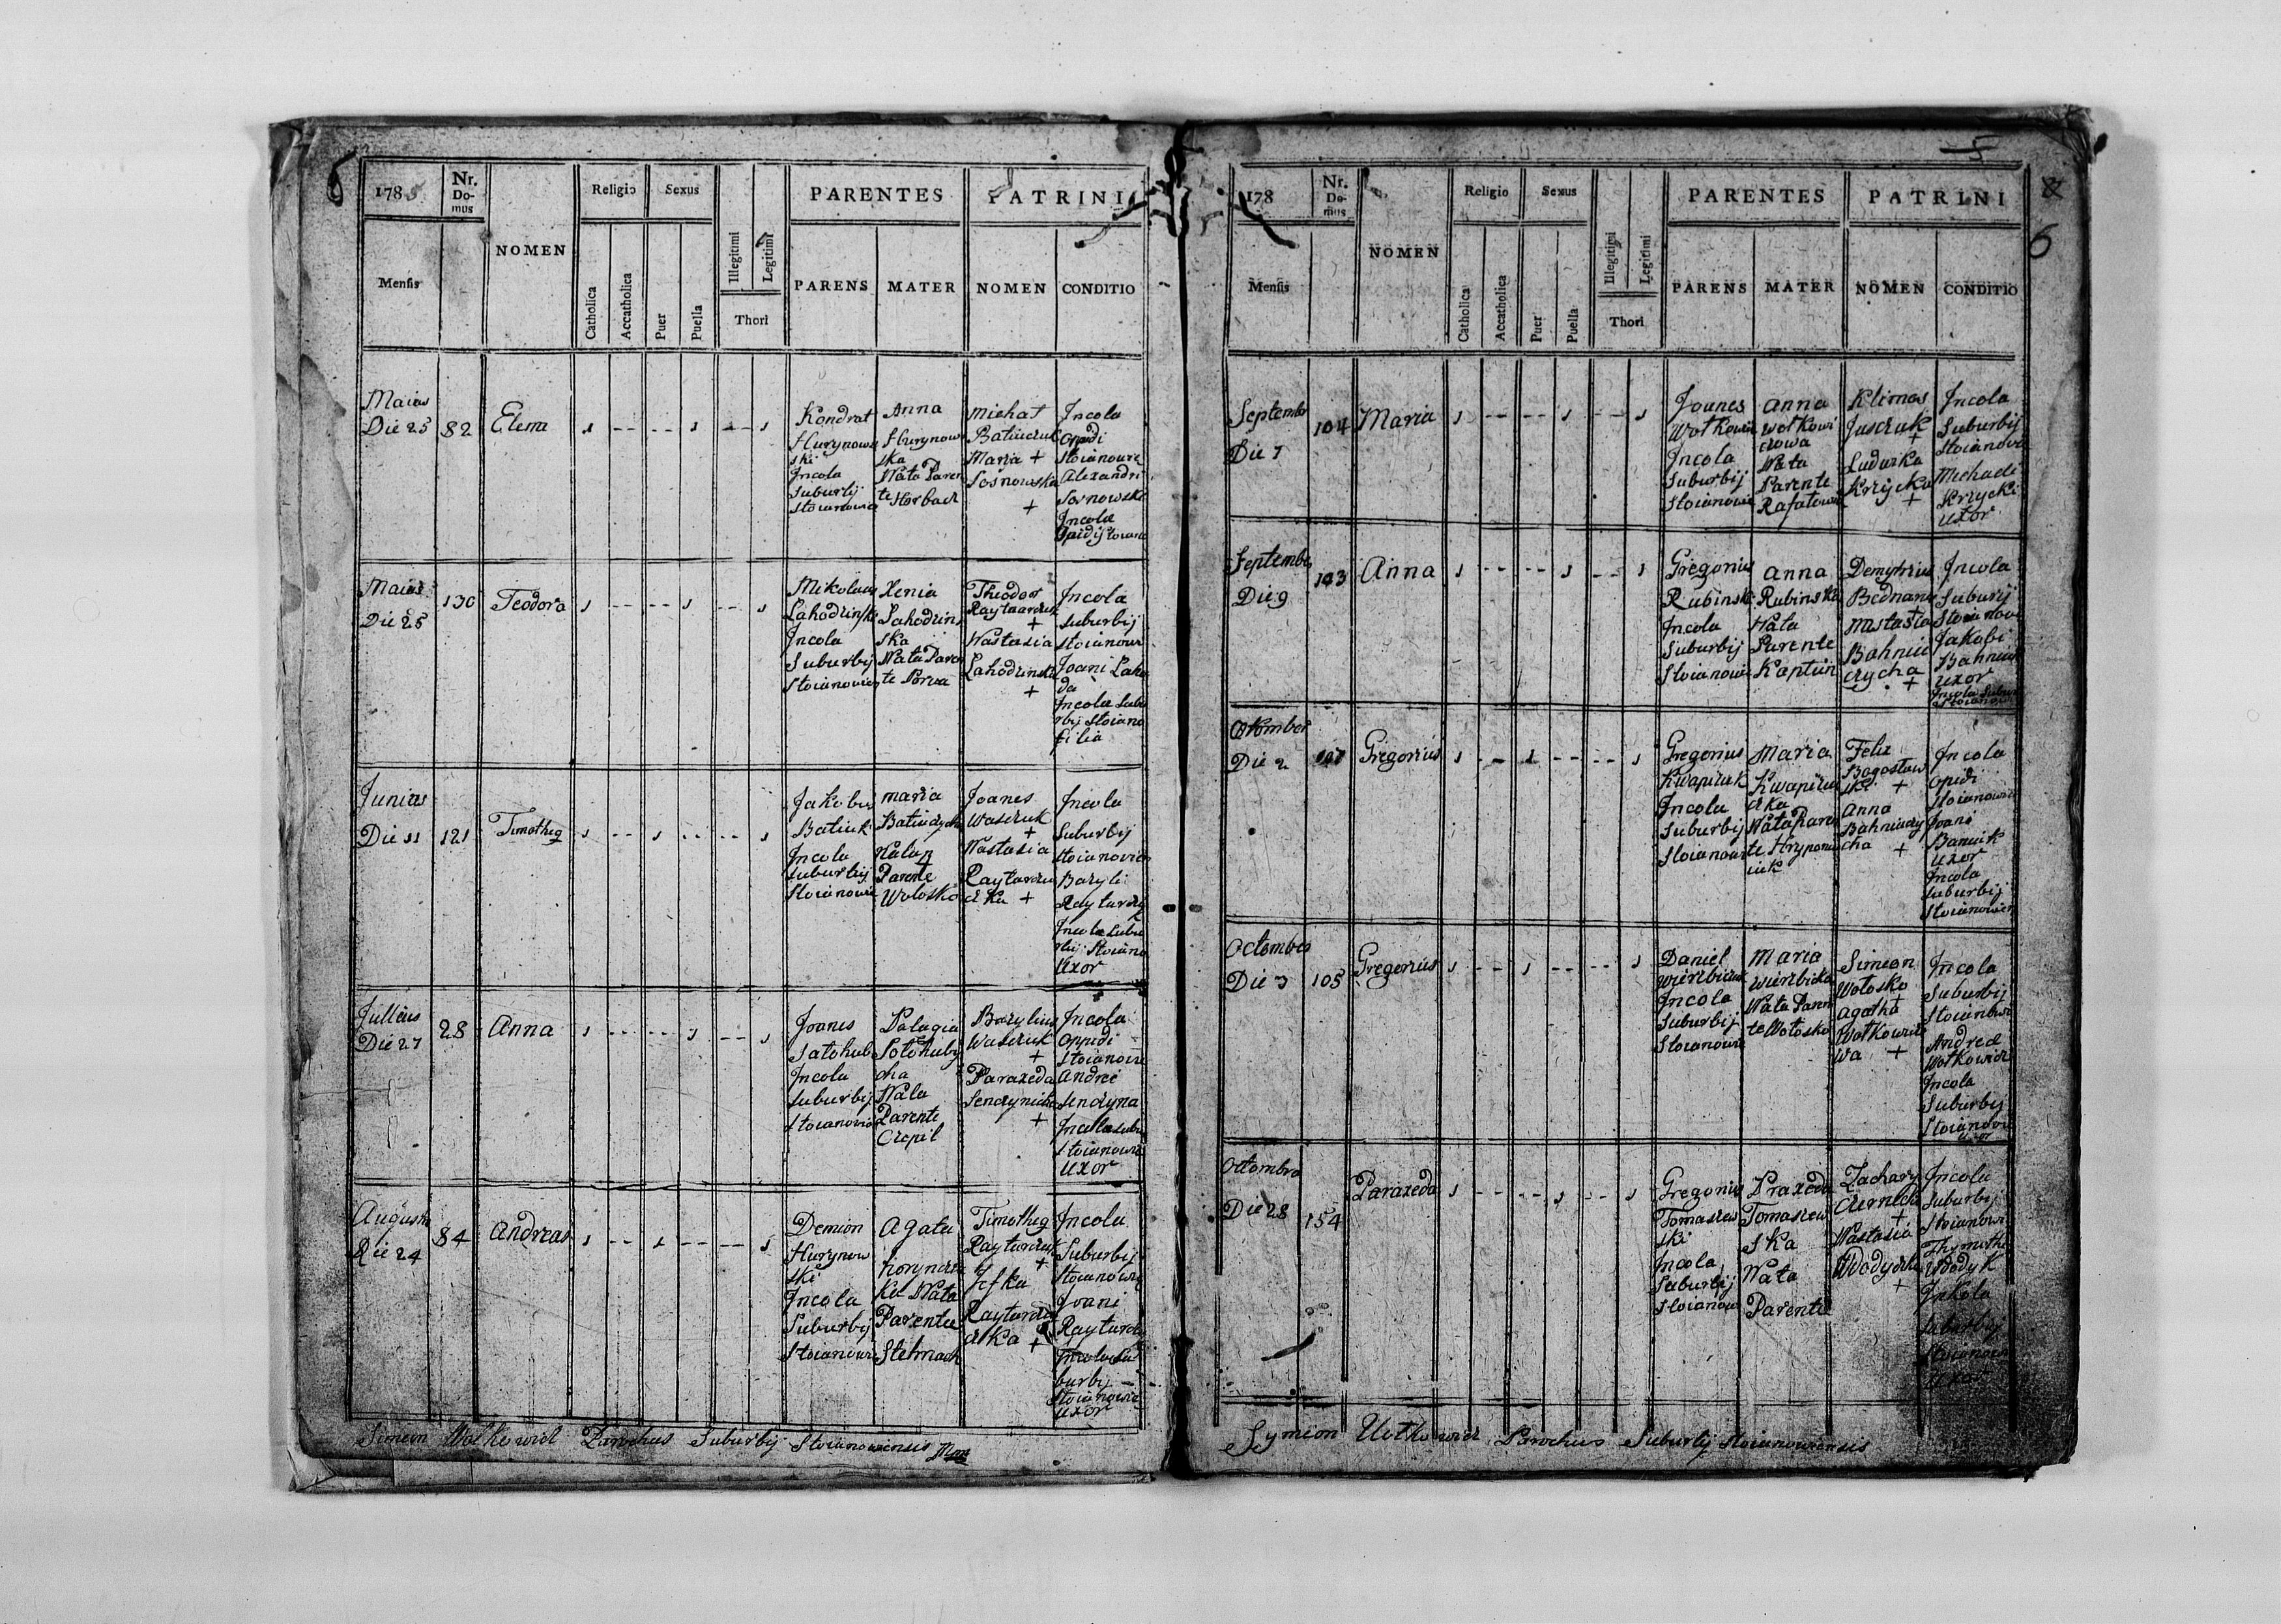 6
1785
Nr. Do-mus
NOMEN
Religio
Sexus
PARENTES
PATRINI
Mensis
Catholica
Accatholica
Puer
Puella
Illegitimi
Legitimi
Thori
PARENS
MATER
NOMEN
CONDITIO
Maius
Die 25
82
Elena
Kondrat
Hurynow
ski
Incola
Suburbij
Stoianowie
Anna
Hurynow
ska
Nata Paren
te Horbach
Michał
Batiuczuk
Maria +
Sosnowska
+
Incola
Opidi
Stoianowie
Alexandri
Sosnowski
Incola
Opidi Stoiano
Maius
Die 25
130
Teodora
Mikolaus
Lahodzinski
Incola
Suburbij
Stoianowien
Xenia
Lahodzins
ka
Nata Paren
te
Theodor
Raytarczuk
+
Nastasia
Lahodzinska
+
Incola
Suburbij
Stoianow
Joani Laho
da
Incola Subu
rbij Stoiano
filia
Junius
Die 11
121
Timotheg
Jakobus
Batiuk
Incola
Suburbij
Stoianowie
Maria
Batiuczycha
Nata
Parente
Wolosko
Joanes
Wasczuk
+
Nastasia
Raytarczu
czka +
Incola
Suburbij
Stoianowien
Bazyli
Raytarczu
Incola Subu
rbij Stoiano
Uxor
Jullius
Die 27
28
Anna
Joanes
Satohub
Incola
Suburbij
Stoianowie
Palagia
Sotohuby
cha
Nata
Parente
Czepil
Bazylius
Wasczuk
+
Paraxeda
Senczynicha
+
Incola
Oppidi
Stoianowie
Andrei
Senczyna
Incola Subu
Stoianowie
Uxor
Augusti
Die 24
84
Andreas
Demion
Hurynow
ski
Incola
Suburbij
Stoianowie
Agata
Nata
Parente
Stelmach
Timotheg
Raytarczuk
+
Jefka
Raytarczu
czka +
Incola
Suburbij
Stoianowie
Joani
Raytarczu
Incola Su
burbij
Stoianowie
Uxor
Simeon Wolkowicz Parochus Suburbij Stoianowiensis
5
6
178
Nr. Do-mus
NOMEN
Religio
Sexus
PARENTES
PATRINI
Mensis
Catholica
Accatholica
Puer
Puella
Illegitimi
Legitimi
Thori
PARENS
MATER
NOMEN
CONDITIO
Septembr
Die 7
104
Maria
Joanes
Wotkowicz
Incola
Suburbij
Stoianowie
Anna
Wotkowi
czowa
Nata
Parente
Rafatowicz
Klimas
Jusczuk
+
Luduika
Krzycka
+
Incola
Suburbij
Stoianowie
Michaeli
Krzycki
Uxor
Septembr
Die 9
103
Anna
Gregorius
Rubinski
Incola
Suburbij
Stoianowie
Anna
Rubinska
Nata
Parente
Kaptun
Demytrius
Bednarz
+
Nastasia
Bahniu
czycha
+
Incola
Suburij
Stoianowi
Jakobi
Bahniuk
Uxor
Incola Subur
Stoianow
Oktomber
Die 2
107
Gregorius
Gregorius
Kwapiuk
Incola
Suburbij
Stoianowie
Maria
Nata Paren
te Hrypeni
iuk
Felix
Bogostaw
ski +
Anna
Bahniuczy
cha +
Incola
Opidi
Stoianowie
Joani
Baniuk
Uxor
Incola
Suburbij
Stoianowien
Octembres
Die 3
105
Gregorius
Daniel
Wierzbicki
Incola
Suburbij
Stoianowie
Maria
Wierzbicka
Nata Paren
te Wotosko
Simeon
Wotosko
+
Agatha
Wotkowiczo
wa +
Incola
Suburbij
Stoianowie
Andrea
Wotkowicz
Incola
Suburbij
Stoianowi
Uxor
Octombra
Die 28
154
Paraxeda
Gregorius
Tomaszew
ski
Incola
Suburbij
Stoianow
Praxeda
Tomaszew
ska
Nata
Parente
Zachary
+
Nastasia
Wodyczka
+
Incola
Suburbij
Stoianowi
Thymothe
Wodyk
Inkola
Suburbij
Stoianowie
Uxor
Symion Wotkowicz Parochus Suburbij Stoianowiensis